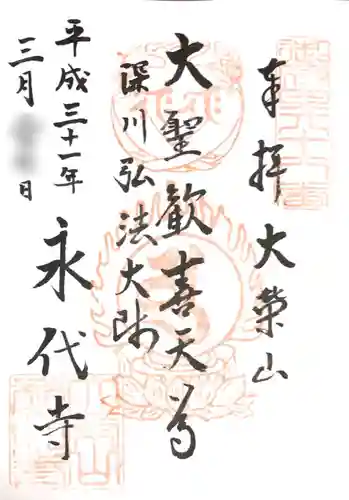 奉拝 大榮山
大聖歓喜天尊
深川弘法大師
永代寺
平成三十一年
三月 日